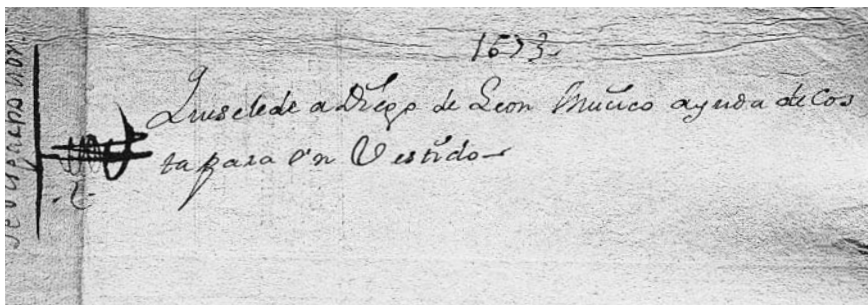 1673
Que se le de a Diego de Leon Mucico ayuda de Cos
ta para Un Vestido